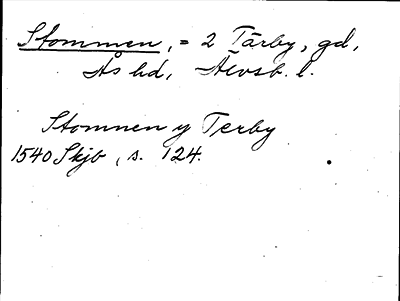 Stommen, = 2 Tärby, gd,
Ås hd, Älvsb. l.
Stomnen y Terby
1540 Skjb, s. 124.